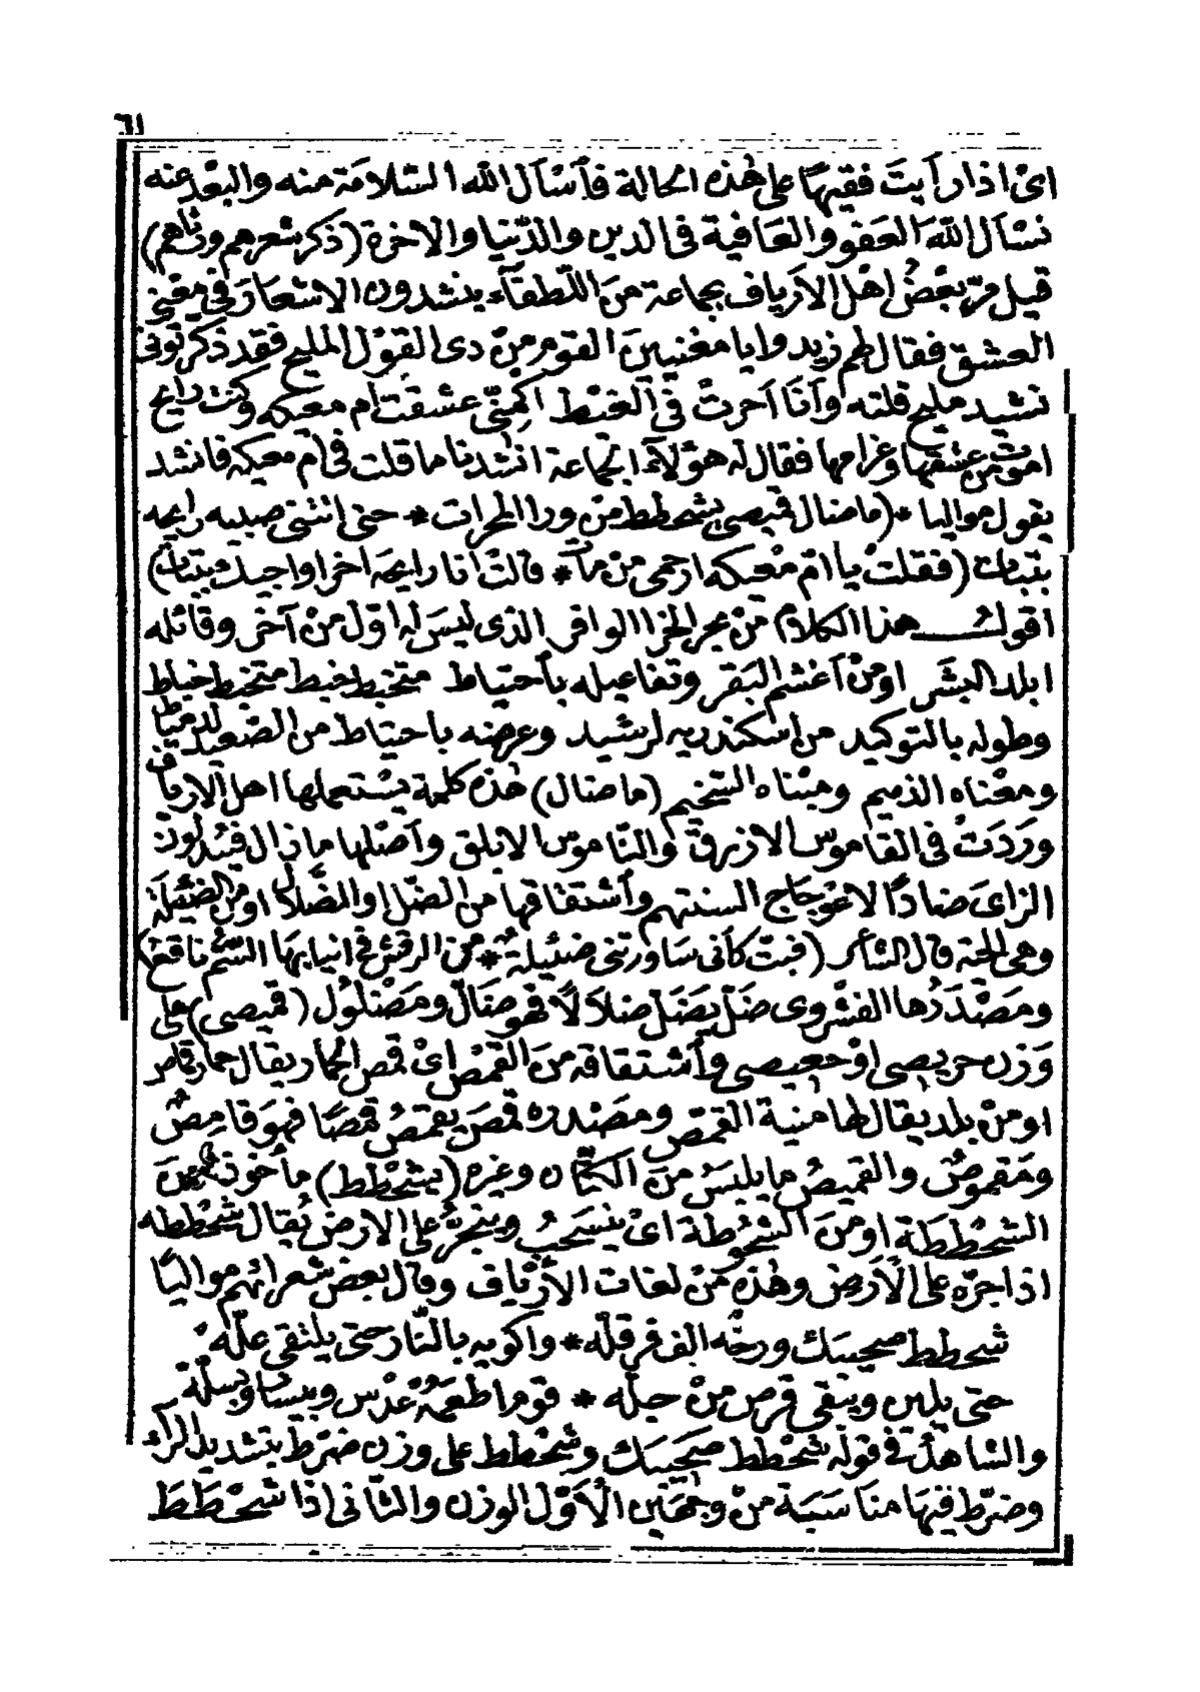 ٦١
اىْ اذا رأيتَ فقيهًا على هٰذه الحالة فأسأل الله السّلامة منه والبعْد عنه
نسْأل اللهَ العَفو والعَافية فى الدين والدّنيا والاخرة (ذكر شعرهم ودناهم)
قيل مرّ بعْضُ اهْل الاَرياف بجماعة منَ اللّطفآء ينشدون الاشعَارَ فى معْنى
العشق فقال لهم زيدوا يا مغنيين القوم منْ دى القوْل المليح فقد ذكرتونى
نشيد مليح قلته وأنَا اَحرتْ فى الغيْط اكمنّى عشقت ام معيكه وكنت رايح
اموت من عشقها وغرامها فقال له هؤلآء الجماعة انشدنا ما قلت فى ام معيكه فانشد
يقول مواليا * (ما ضال قميصى يشحطط منْ ورا المحرات * حتى انثنى صبيه رايحه
بتبتات (فقلتْ يا امّ معْيكه ارحمى من مآت * قالت انا رايحه اخرا واجيك بتبتات)
اقولـــ هذا الكلامُ منْ بحر الخرا الوافر الذى ليسَ له اوّل منْ آخر وقائله
ابلد البشَر اومنْ اَغشم البَقر وتفاعيله بأحتياط متخبط خبط متخبط خباط
وطوله بالتوكيد من اسكندريه لرشيد وعرضه باحتياط من الصّعيد لدمياط
ومعْناه الذميم ومبْناه السّخيم (ما ضال) هٰذه كلمة يسْتعملها اهل الارياف
ورَدَتْ فى القاموس الازرق والنّاموس الابلق وأصْلها ما ذال فيُبْدلونَ
الزاىَ ضادًا لاعْوجَاج السنتهم وأشتقاقها من الضّل او الضّلال او من الضئيلة
وهى الحيّة قال الشّاعر (فبتّ كأنى سَاورتنى ضئيلةٌ * من الرقش فى انيابهَا السّمُّ ناقعُ)
ومَصْدَرُها الفشْروى ضَلّ يضَل ضلاَلاً فهو ضَالّ ومَضْلوُل (قميصى) على
وَزن حريصى اوْ جعيصى وأشتقاقه منَ القمْص اىْ قمص الحمار يقال حمار قامص
او منْ بلد يقال لها منية القمّص ومصْدره قمصَ يقمّصُ قمْصًا فهوَ قامِصٌ
ومَقموصٌ والقميصُ ما يلبسُ منَ الكتّان وغيره (يشحْطط) مأخوذ منَ
الشحْططَة او منَ الشحُوطة اىْ ينسَحبُ وينجرُّ على الارض يُقال شحْططه
اذا جرّه على الاَرض وهٰذه منْ لغات الاَرْياف وقال بعض شعرائهم مواليًا
شحطط صحيبك ورخّه الف فرقلّه * واكويه بالنّار حتى يلتقى علّهْ
حتى يلين ويبْقى قرص منْ جلّه * قوم اطعمُهْ عَدْس وبيسَار وبسلّه
والشاهدُ فى قوله شحْطط صحَيبك وشحْطط على وزن ضرّط بتشديد الرآء
وضرّط فيهَا مناسَبَة منْ وجهَين الاَوّل الوزن والثّانى اذا شحْطَطَ